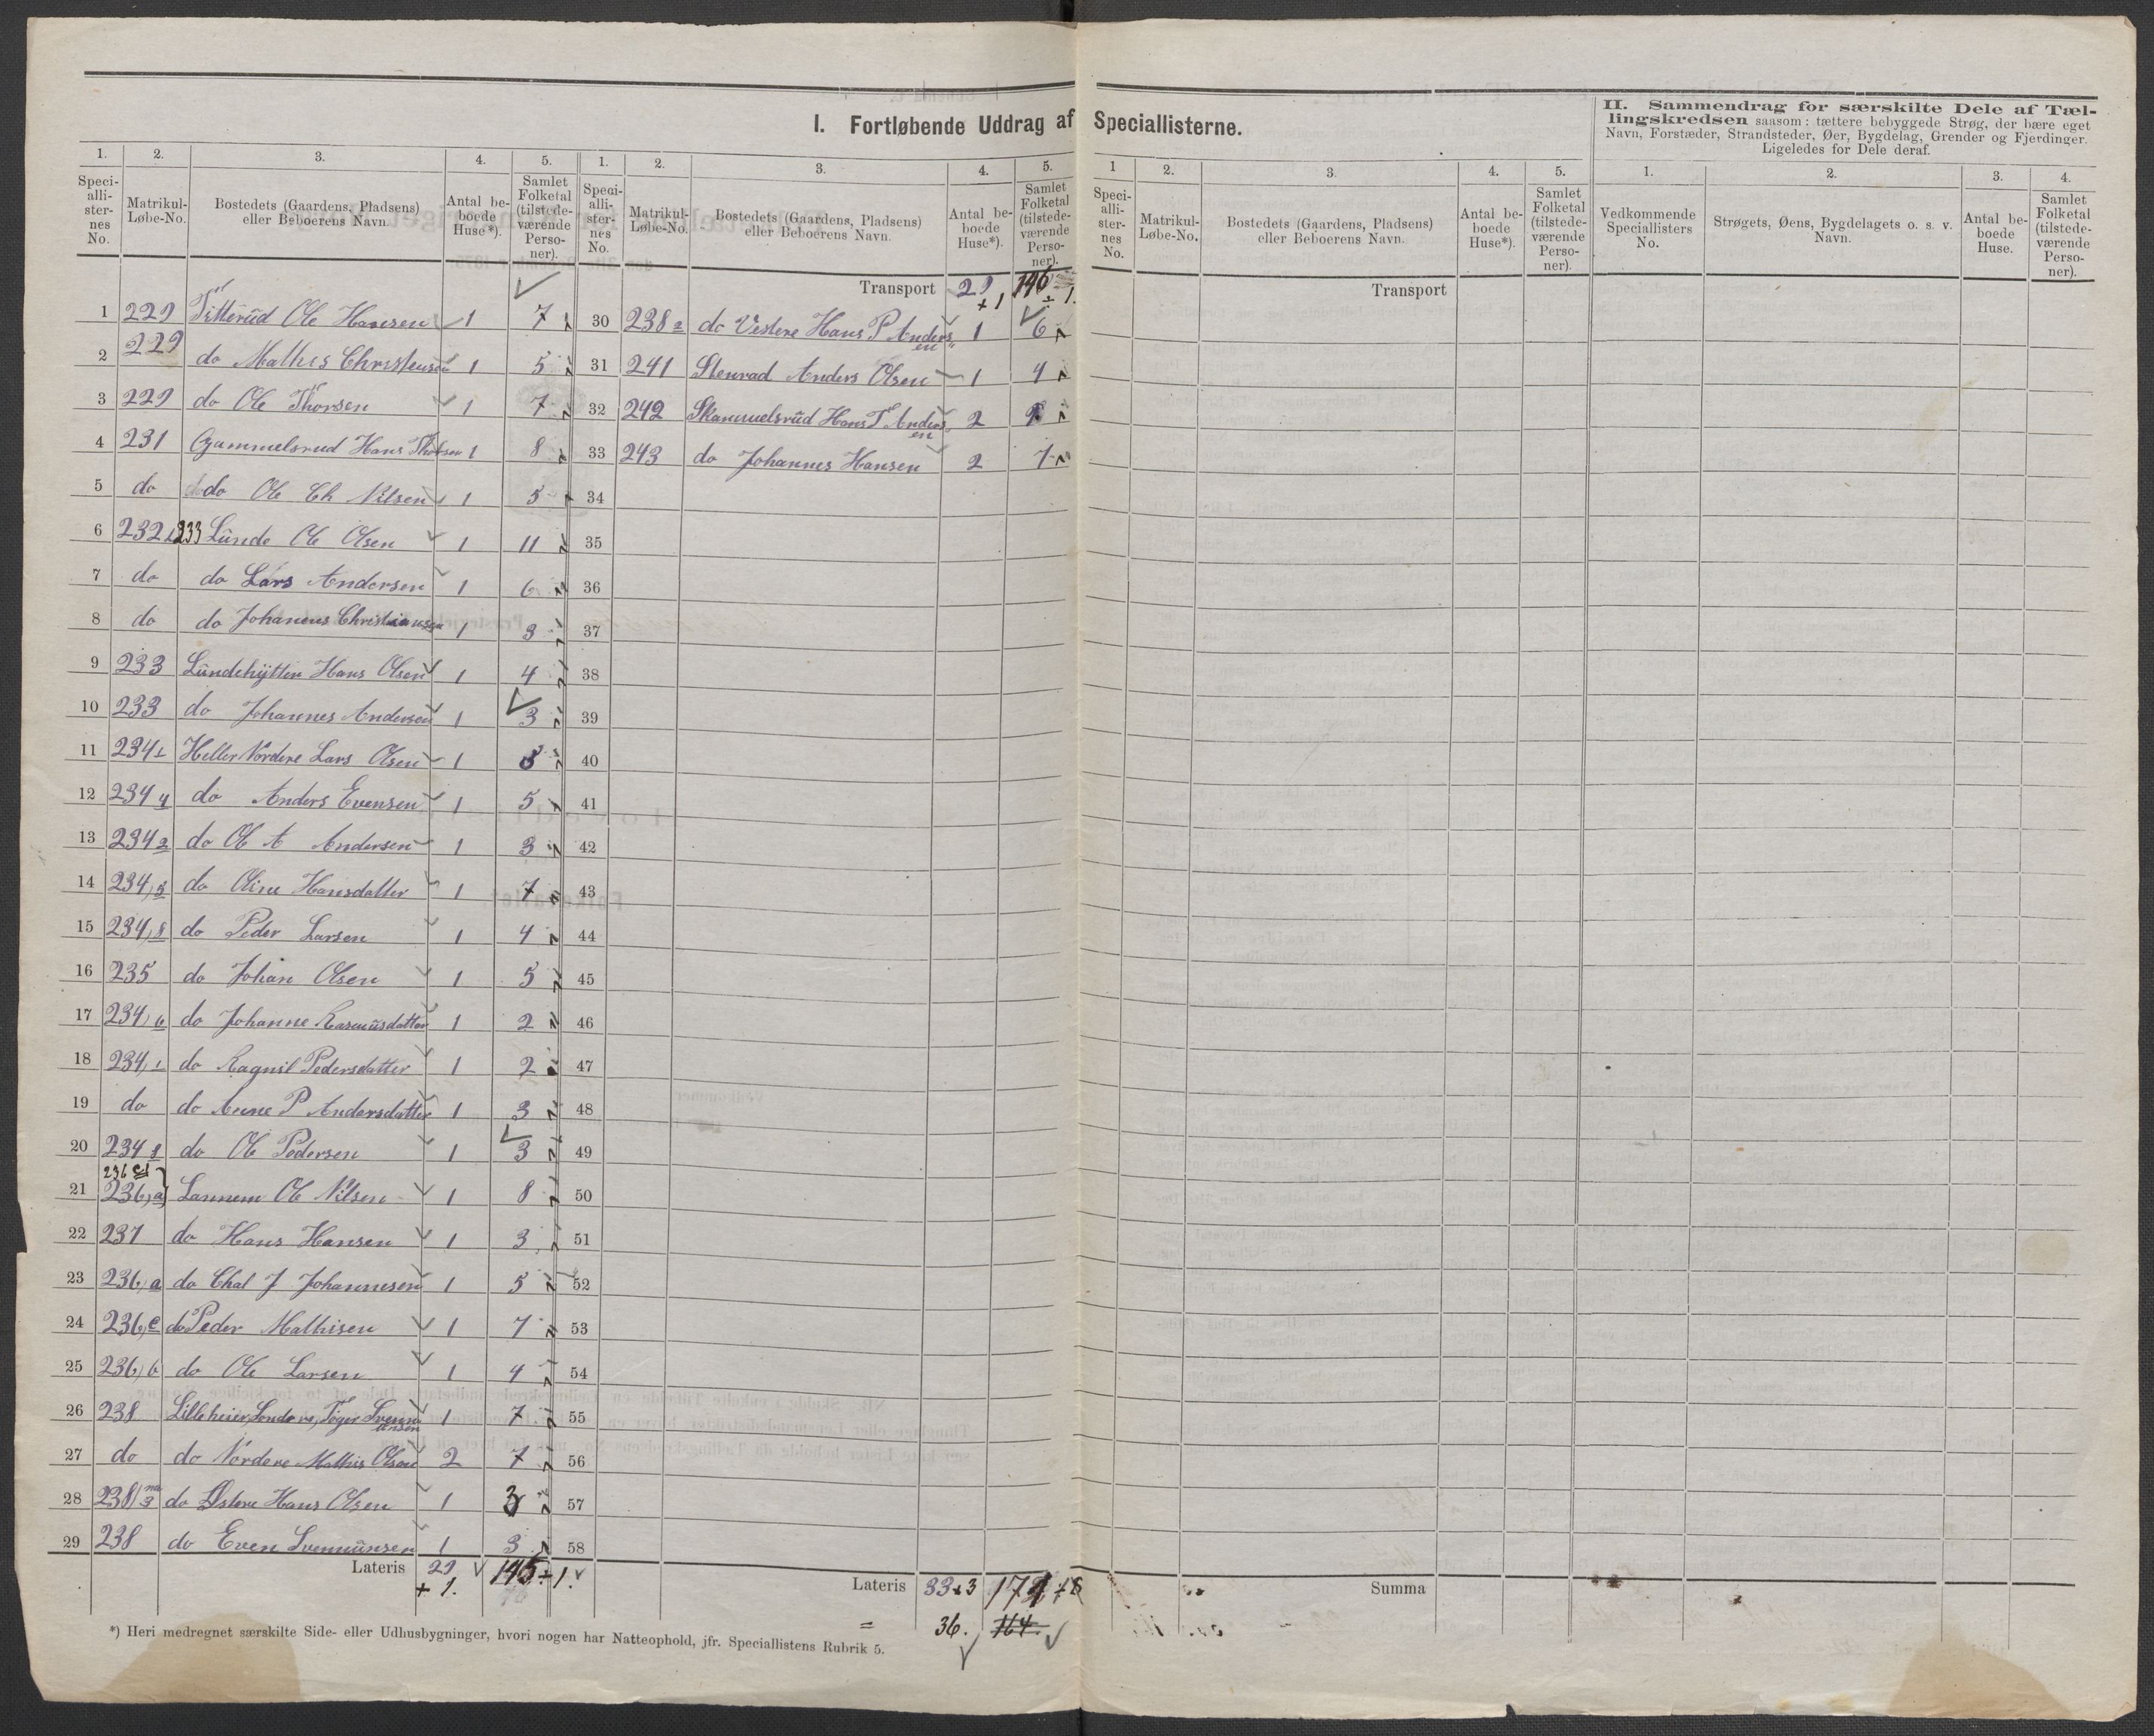 I. Fortløbende Uddrag af Speciallisterne.
1. 2. 3. 4. 5.
Speci-
alli-
ster-
nes
No.
Matrikul-
Løbe-No.
Bostedets (Gaardens, Pladsens)
eller Beboerens Navn.
Antal be-
boede
Huse*).
Samlet
Folketal
(tilstede-
værende
Perso-
ner).
1 229 Titterud Ole Hansen 1 7
2 229 do Mathis Christensen 1 5
3 229 do Ole Thorsen 1 7
4 231 Gammelsrud Hans Thorsen 1 8
5 do do Ole Ch Nilsen 1 5
6 232 233 Lunde Ole Olsen 1 11
7 do do Lars Andersen 1 6
8 do do Johannes Christiansen 1 3
9 233 Lundehytten Hans Olsen 1 4
10 233 do Johannes Andersen 1 3
11 234 1 Heller Nordere Lars Olsen 1
12 234 4 do Anders Evensen 1 5
13 234 2 do Ole A Andersen 1 3
14 234,5 do Oline Hansdatter 1 7
15 234,8 do Peder Larsen 1 4
16 235 do Johan Olsen 1 5
17 234,6 do Johanne Rasmusdatter 1 2
18 234,1 do Ragnil Pedersdatter 1 2
19 do do Anne P Andersdatter 1 3
20 234 do Ole Pedersen 1 3
236
21 236,a Lannem Ole Nilsen 1 8
22 237 do Hans Hansen 1 3
23 236,a do Chal J Johannesen 1 5
24 236,c do Peder Mathisen 1 7
25 236,b do Ole Larsen 1 4
26 238 Lilleheier Søndere, Tøger Svenn
unsen 1 7
27 do do Nordere Mathis Olsen 2 7
28 238 do Østere Hans Olsen 1 3
29 238 do Even Svennunsen 1 3
Lateris 29 145 ÷ 1.
+ 1.
*) Heri medregnet særskilte Side- eller Udhusbygninger, hvori nogen har Natteophold, jfr. Speciallistens Rubrik 5.
1. 2. 3. 4. 5.
Speci-
alli-
ster-
nes
No.
Matrikul-
Løbe-No.
Bostedets (Gaardens, Pladsens)
eller Beboerens Navn.
Antal be-
boede
Huse*).
Samlet
Folketal
(tilstede-
værende
Perso-
ner).
Transport 29 146
+ 1 ÷ 1.
30 238 2 do Vestere Hans P Anders
en 1 6
31 241 Stenrad Anders Olsen 1 4
32 242 Skammelsrud Hans T Anders
en 2
33 243 do Johannes Hansen 2 7
34
35
36
37
38
39
40
41
42
43
44
45
46
47
48
49
50
51
52
53
54
55
56
57
58
Lateris 33+3
= 36. 164.
1 2. 3. 4. 5.
Speci-
alli-
ster-
nes
No.
Matrikul-
Løbe-No.
Bostedets (Gaardens, Pladsens)
eller Beboerens Navn.
Antal be-
boede
Huse*).
Samlet
Folketal
(tilstede-
værende
Perso-
ner).
Transport
Summa
II. Sammendrag for særskilte Dele af Tæl-
lingskredsen saasom: tættere bebyggede Strøg, der bære eget
Navn, Forstæder, Strandsteder, Øer, Bygdelag, Grender og Fjerdinger.
Ligeledes for Dele deraf.
1. 2. 3. 4.
Vedkommende
Speciallisters
No.
Strøgets, Øens, Bygdelagets o. s. v.
Navn.
Antal be-
boede
Huse.
Samlet
Folketal
(tilstede-
værende
Perso-
ner).